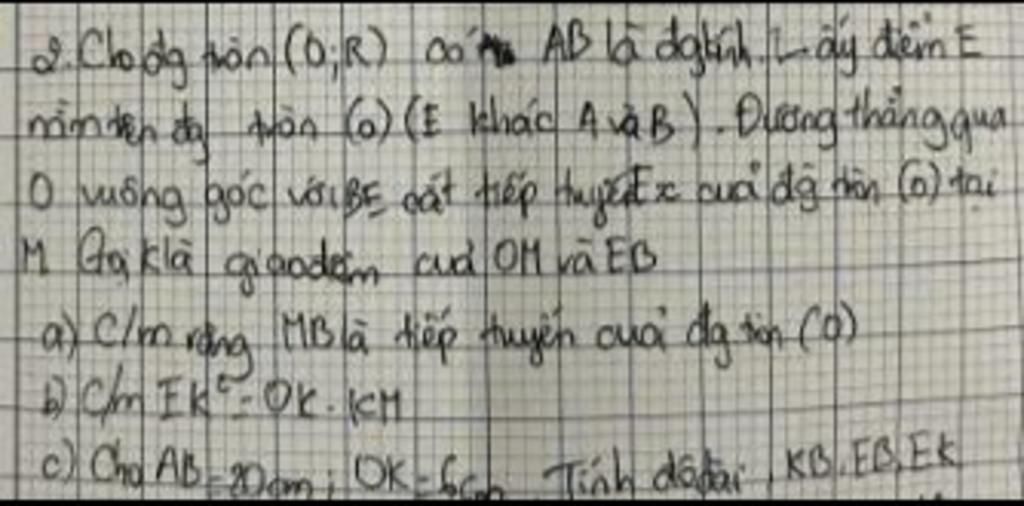 2. Cho đg tròn (O;R) có AB là đgkính. Lấy điểm E
nằm trên đg tròn (O) (E khác A và B). Đường thẳng qua
O vuông góc với BE cắt tiếp tuyến Ex của đg tròn (O) tại
M Gọi K là giao điểm của OM và EB
a) C/m rằng MB là tiếp tuyến của đg tròn (O)
b) C/m EK² = OK . KM
c) Cho AB = 20cm; OK = 6cm. Tính độ dài KB, EB, EK